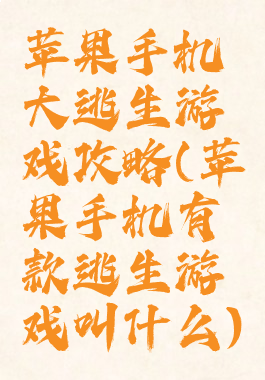 苹果手机
大逃生游
戏攻略(苹
果手机有
款逃生游
戏叫什么)